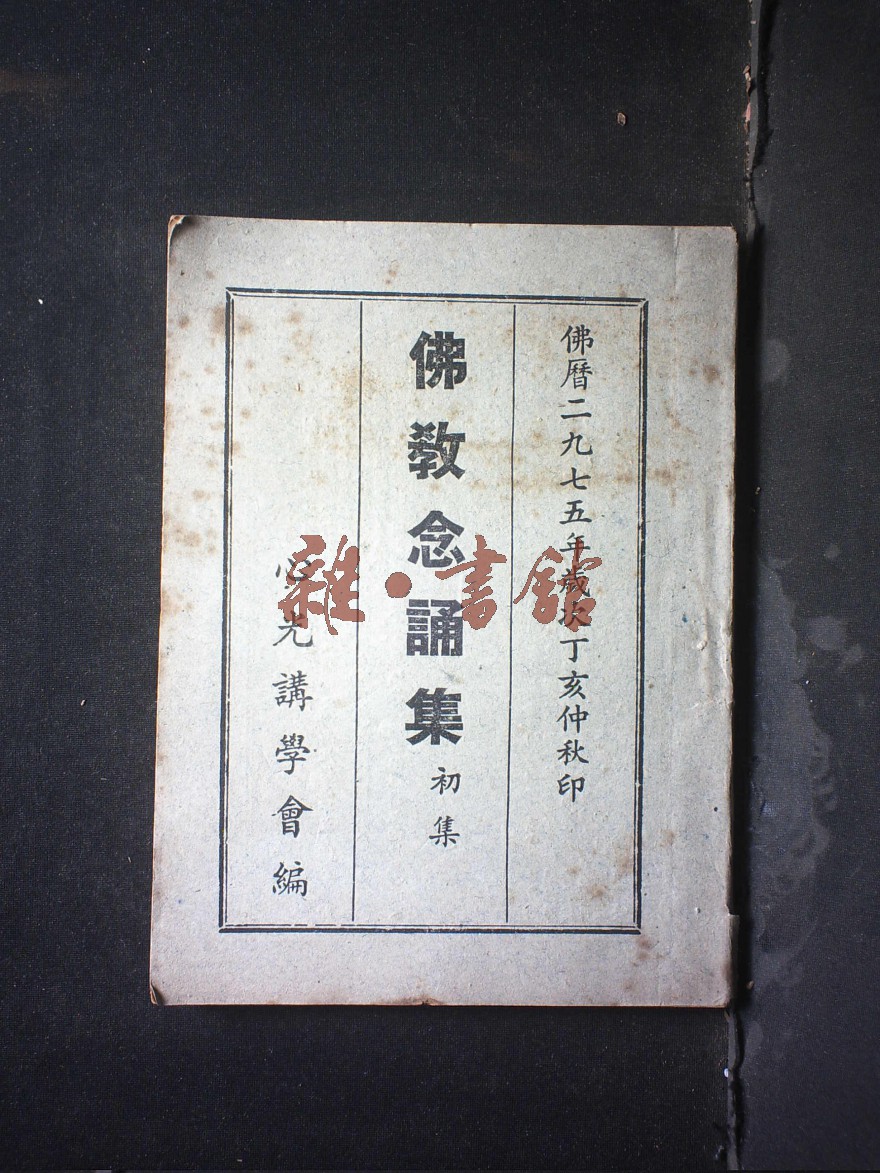 佛曆二九七五年歲次丁亥仲秋印
佛敎念誦集
初集
心光講學會編
雜·書館